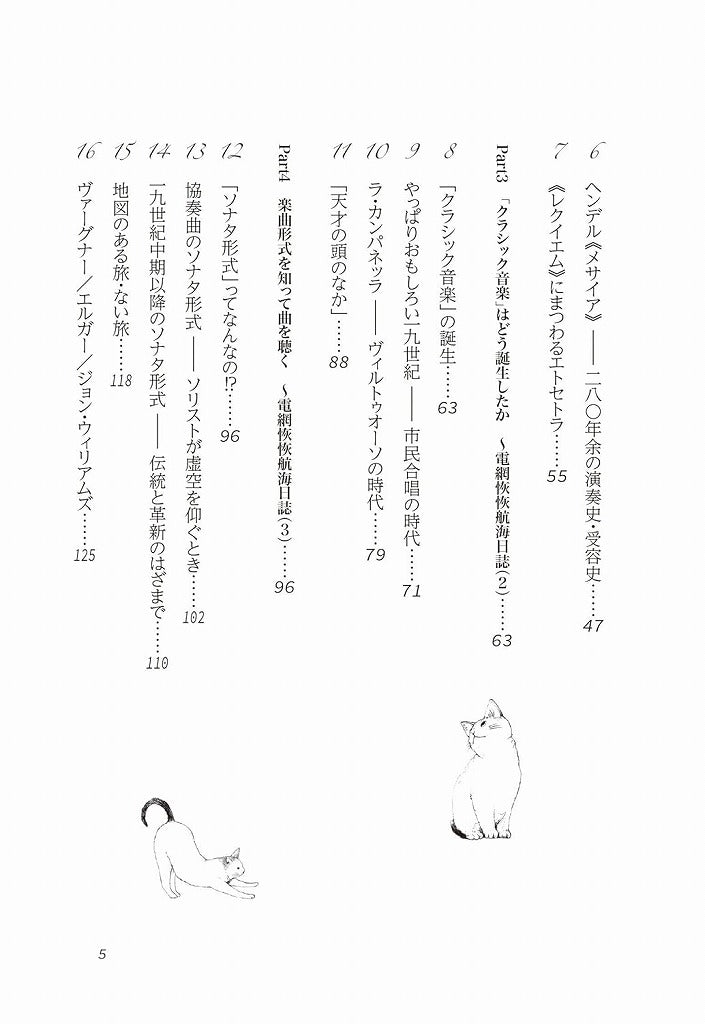 6 ヘンデル《メサイア》── 二八〇年余の演奏史・受容史……47
7 《レクイエム》にまつわるエトセトラ……55
Part3 「クラシック音楽」はどう誕生したか 〜電網恢恢航海日誌(2)……63
8 「クラシック音楽」の誕生……63
9 やっぱりおもしろい一九世紀 ── 市民合唱の時代……71
10 ラ・カンパネッラ ── ヴィルトゥオーソの時代……79
11 「天才の頭のなか」……88
Part4 楽曲形式を知って曲を聴く 〜電網恢恢航海日誌(3)……96
12 「ソナタ形式」ってなんなの!?……96
13 協奏曲のソナタ形式 ── ソリストが虚空を仰ぐとき……102
14 一九世紀中期以降のソナタ形式 ── 伝統と革新のはざまで……110
15 地図のある旅・ない旅……118
16 ヴァーグナー／エルガー／ジョン・ウィリアムズ……125
5